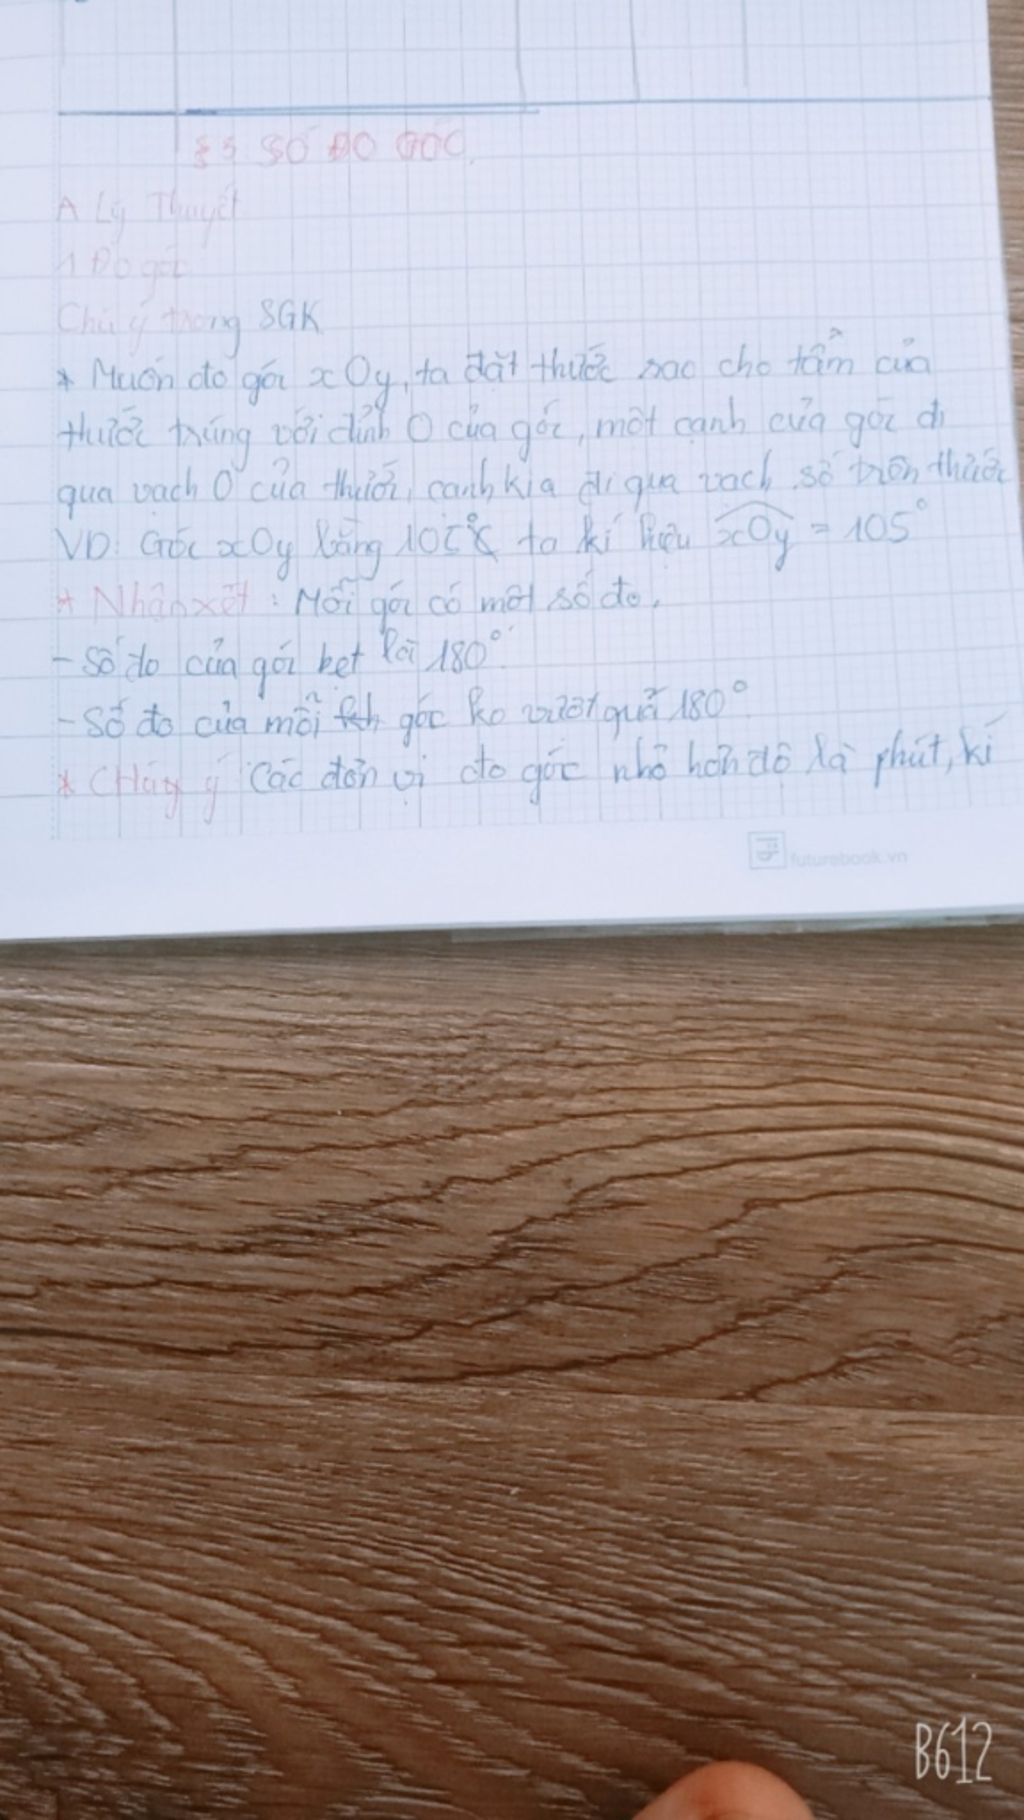 §3 SỐ ĐO GÓC.
A Lý Thuyết
1 Đo góc
Chú ý trong SGK
* Muốn đo góc xOy, ta đặt thước sao cho tâm của
thước trùng với đỉnh O của góc, một cạnh của góc đi
qua vạch O của thước, cạnh kia đi qua vạch số trên thước
VD: Góc xOy bằng 105° ta kí hiệu xOy = 105°
* Nhận xét: Mỗi góc có một số đo.
- Số đo của góc bẹt là 180°
- Số đo của mỗi góc ko vượt quá 180°
* CHúy ý Các đơn vị đo góc nhỏ hơn độ là phút, kí
futurebook.vn
B612